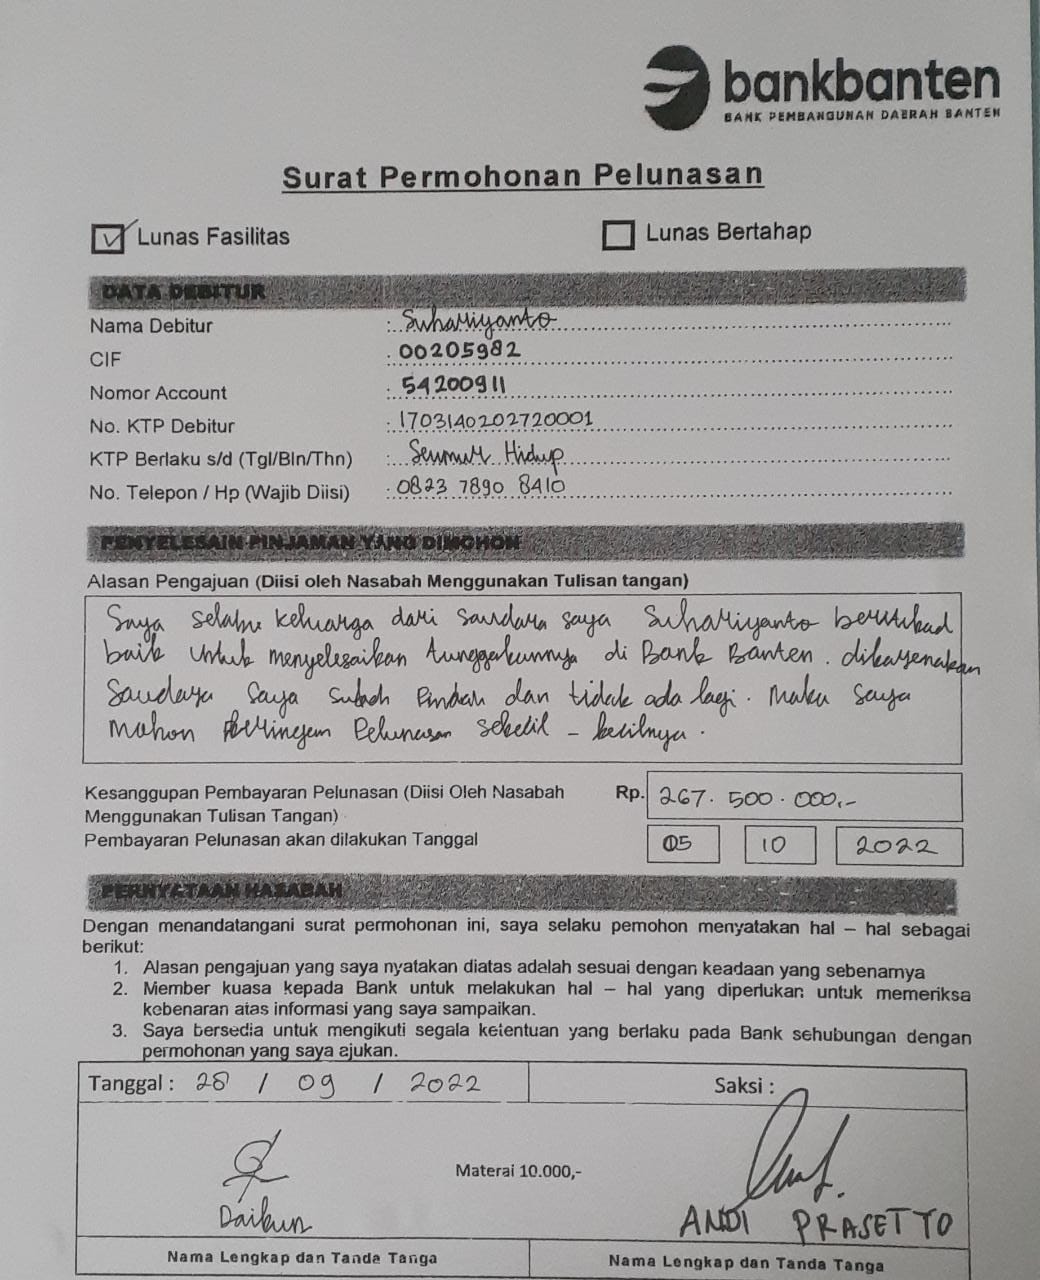 bankbanten
BANK PEMBANGUNAN DAERAH BANTEN
Surat Permohonan Pelunasan
Lunas Fasilitas
Lunas Bertahap
DATA DEBITUR
Nama Debitur : Suhariyanto
CIF : 00205982
Nomor Account : 54200911
No. KTP Debitur : 1703140202720001
KTP Berlaku s/d (Tgl/Bln/Thn) : Seumur Hidup
No. Telepon / Hp (Wajib Diisi) : 0823 7890 8410
PENYELESAIN PINJAMAN YANG DIMOHON
Alasan Pengajuan (Diisi oleh Nasabah Menggunakan Tulisan tangan)
Saya selaku keluarga dari saudara saya Suhariyanto beritikad
baik untuk menyelesaikan tunggakannya di Bank Banten. dikarenakan
Saudara saya sudah Pindah dan tidak ada lagi. Maka saya
Mohon Keringan Pelunasan sekecil - kecilnya.
Kesanggupan Pembayaran Pelunasan (Diisi Oleh Nasabah Rp. 267.500.000,-
Menggunakan Tulisan Tangan)
Pembayaran Pelunasan akan dilakukan Tanggal 05 10 2022
PERNYATAAN NASABAH
Dengan menandatangani surat permohonan ini, saya selaku pemohon menyatakan hal – hal sebagai
berikut:
1. Alasan pengajuan yang saya nyatakan diatas adalah sesuai dengan keadaan yang sebenarnya
2. Member kuasa kepada Bank untuk melakukan hal – hal yang diperlukan untuk memeriksa
kebenaran atas informasi yang saya sampaikan.
3. Saya bersedia untuk mengikuti segala ketentuan yang berlaku pada Bank sehubungan dengan
permohonan yang saya ajukan.
Tanggal : 28 / 09 / 2022
Saksi :
Materai 10.000,-
Daikun
ANDI PRASETTO
Nama Lengkap dan Tanda Tanga
Nama Lengkap dan Tanda Tanga